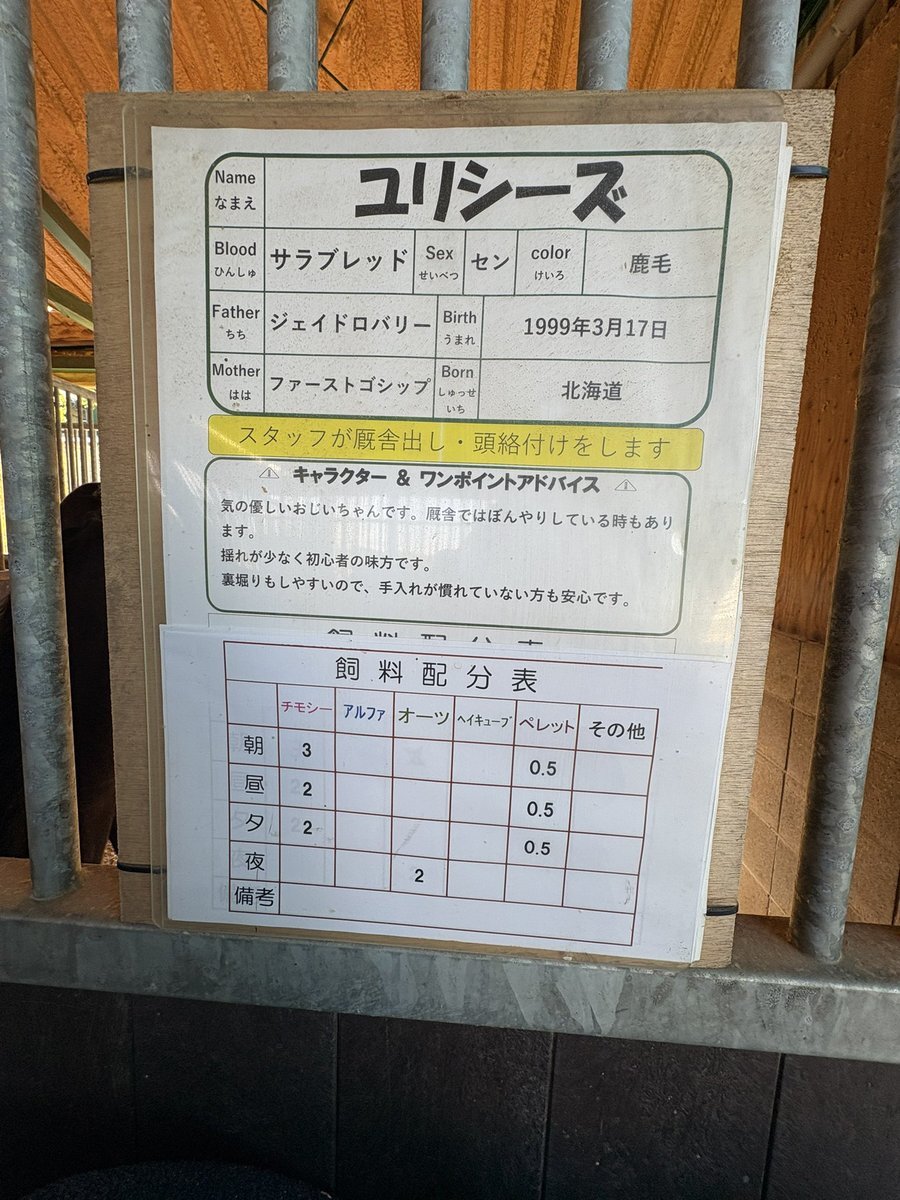 Name
なまえ
ユリシーズ
Blood
ひんしゅ
サラブレッド
Sex
せいべつ
セン
color
けいろ
鹿毛
Father
ちち
ジェイドロバリー
Birth
うまれ
1999年3月17日
Mother
はは
ファーストゴシップ
Born
しゅっせ
いち
北海道
スタッフが厩舎出し・頭絡付けをします
キャラクター & ワンポイントアドバイス
気の優しいおじいちゃんです。厩舎ではぼんやりしている時もあり
ます。
揺れが少なく初心者の味方です。
裏堀りもしやすいので、手入れが慣れていない方も安心です。
飼料配分表
飼料配分表
チモシー アルファ オーツ ヘイキューブ ペレット その他
朝 3 0.5
昼 2 0.5
夕 2 0.5
夜 2
備考